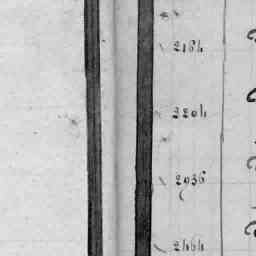 2164
2204
2936
2464